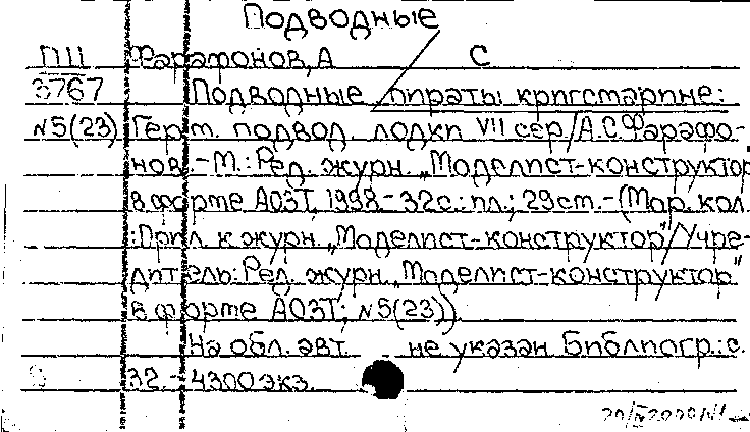 Подводные
П11 Фарафонов, А С
3767 Подводные пираты кригсмарине:
N5(23) Герм. подвод. лодки VII сер./А.С.Фарафо-
нов.-М.:Ред. журн. „Моделист-конструктор"
в форме АОЗТ, 1998.-32с.:ил.; 29см.-(Мор. кол.
:Прил. к журн. „Моделист-конструктор"/Учре-
дитель: Ред. журн. „Моделист-конструктор"
в форме АОЗТ; N5(23))
На обл. авт. не указан. Библиогр.: с.
32.-4300 экз.